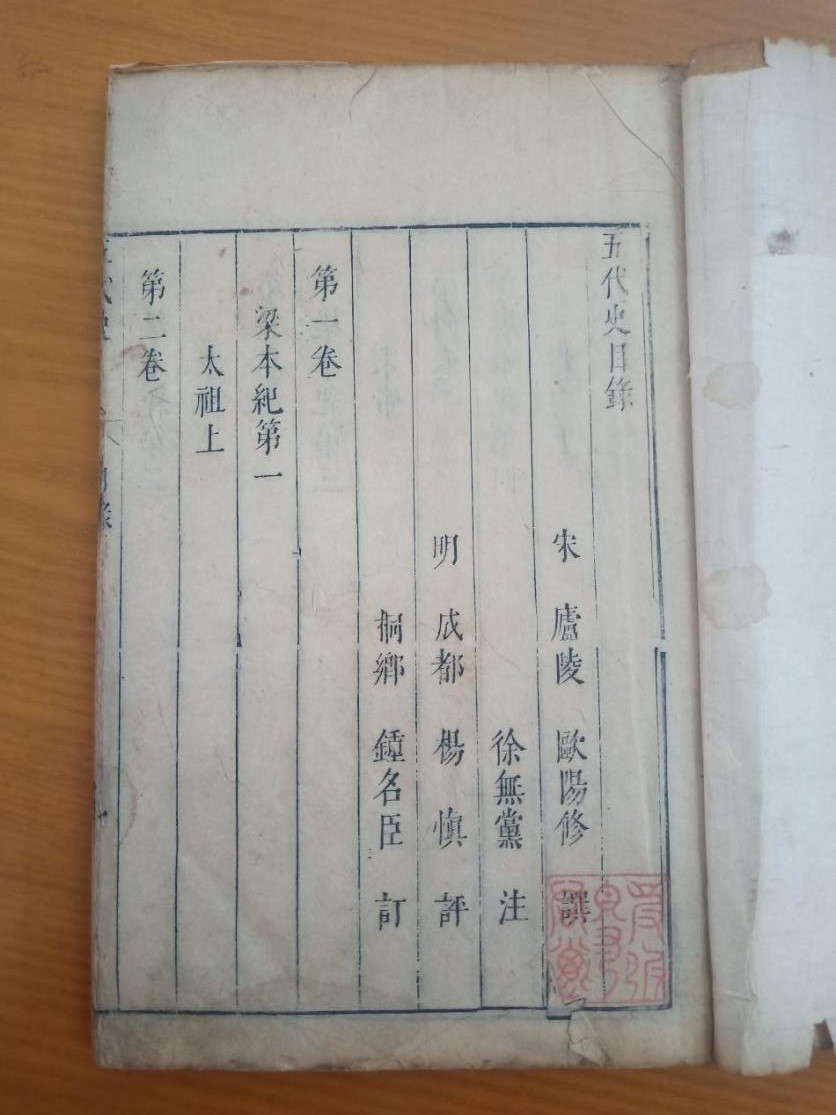 五代史目錄
宋 廬陵 歐陽修 譔
徐無黨 注
明 成都 楊慎 評
桐鄉 鍾名臣 訂
第一卷
梁本紀第一
太祖上
第二卷
五代史 目錄